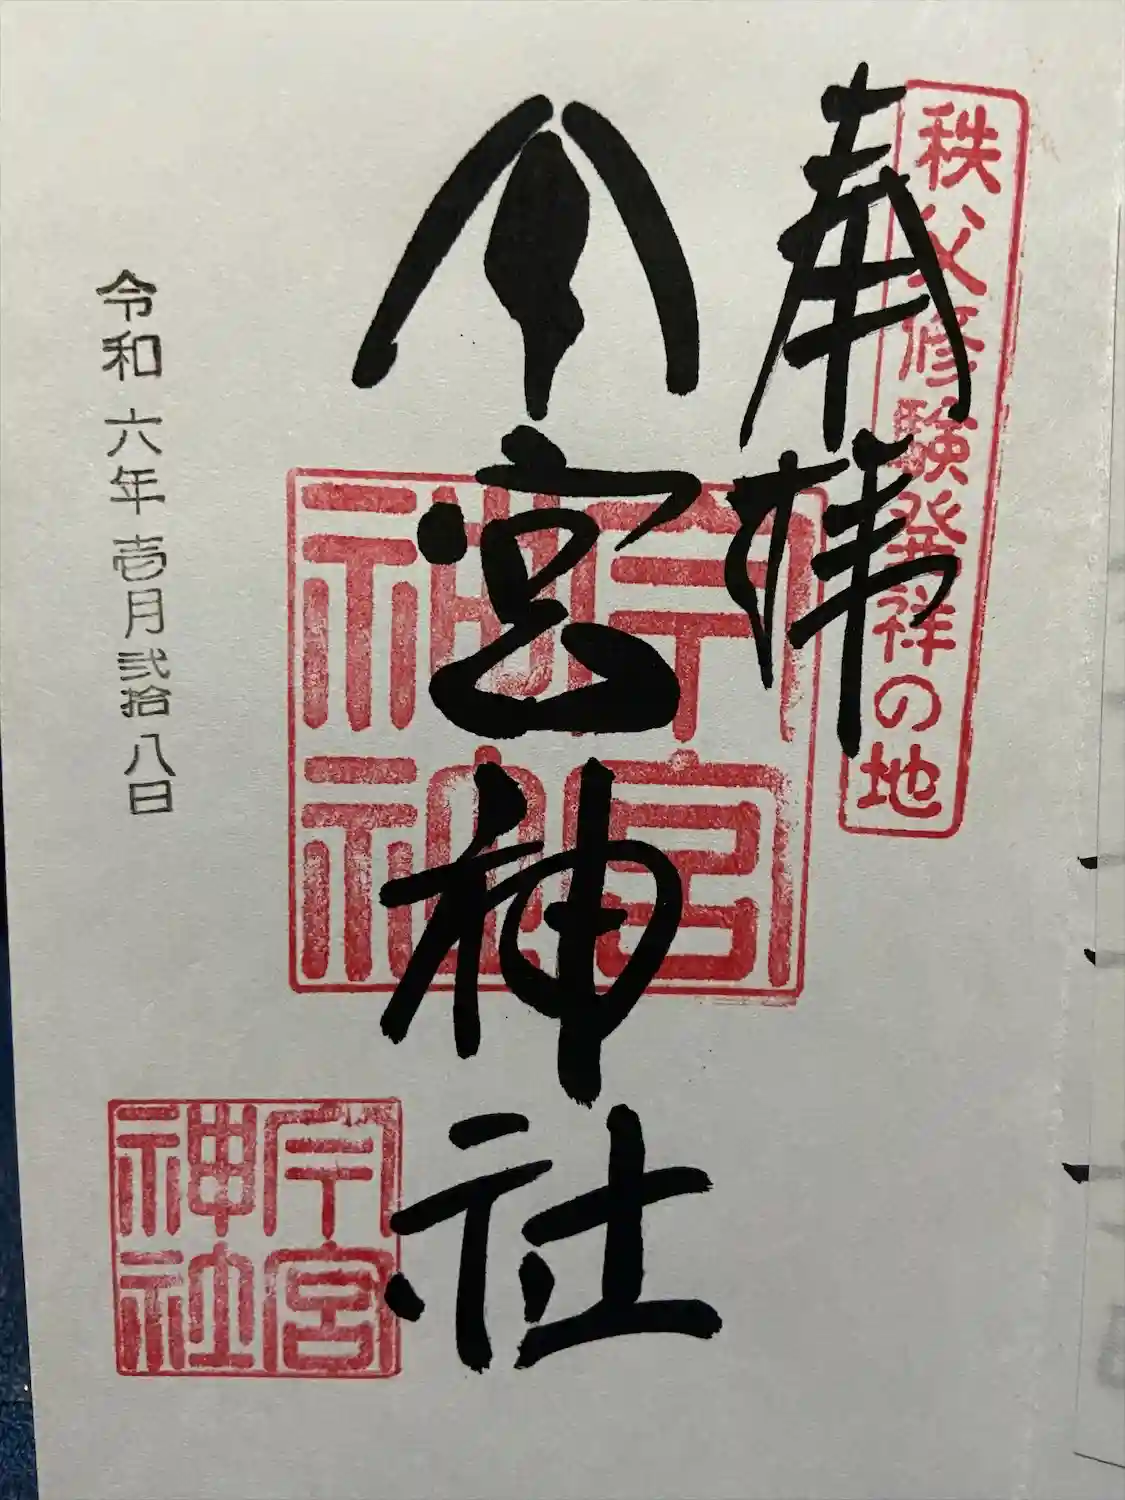 秩父修験発祥の地
奉拝
今宮神社
今宮神社
令和六年壱月弐拾八日
今宮神社